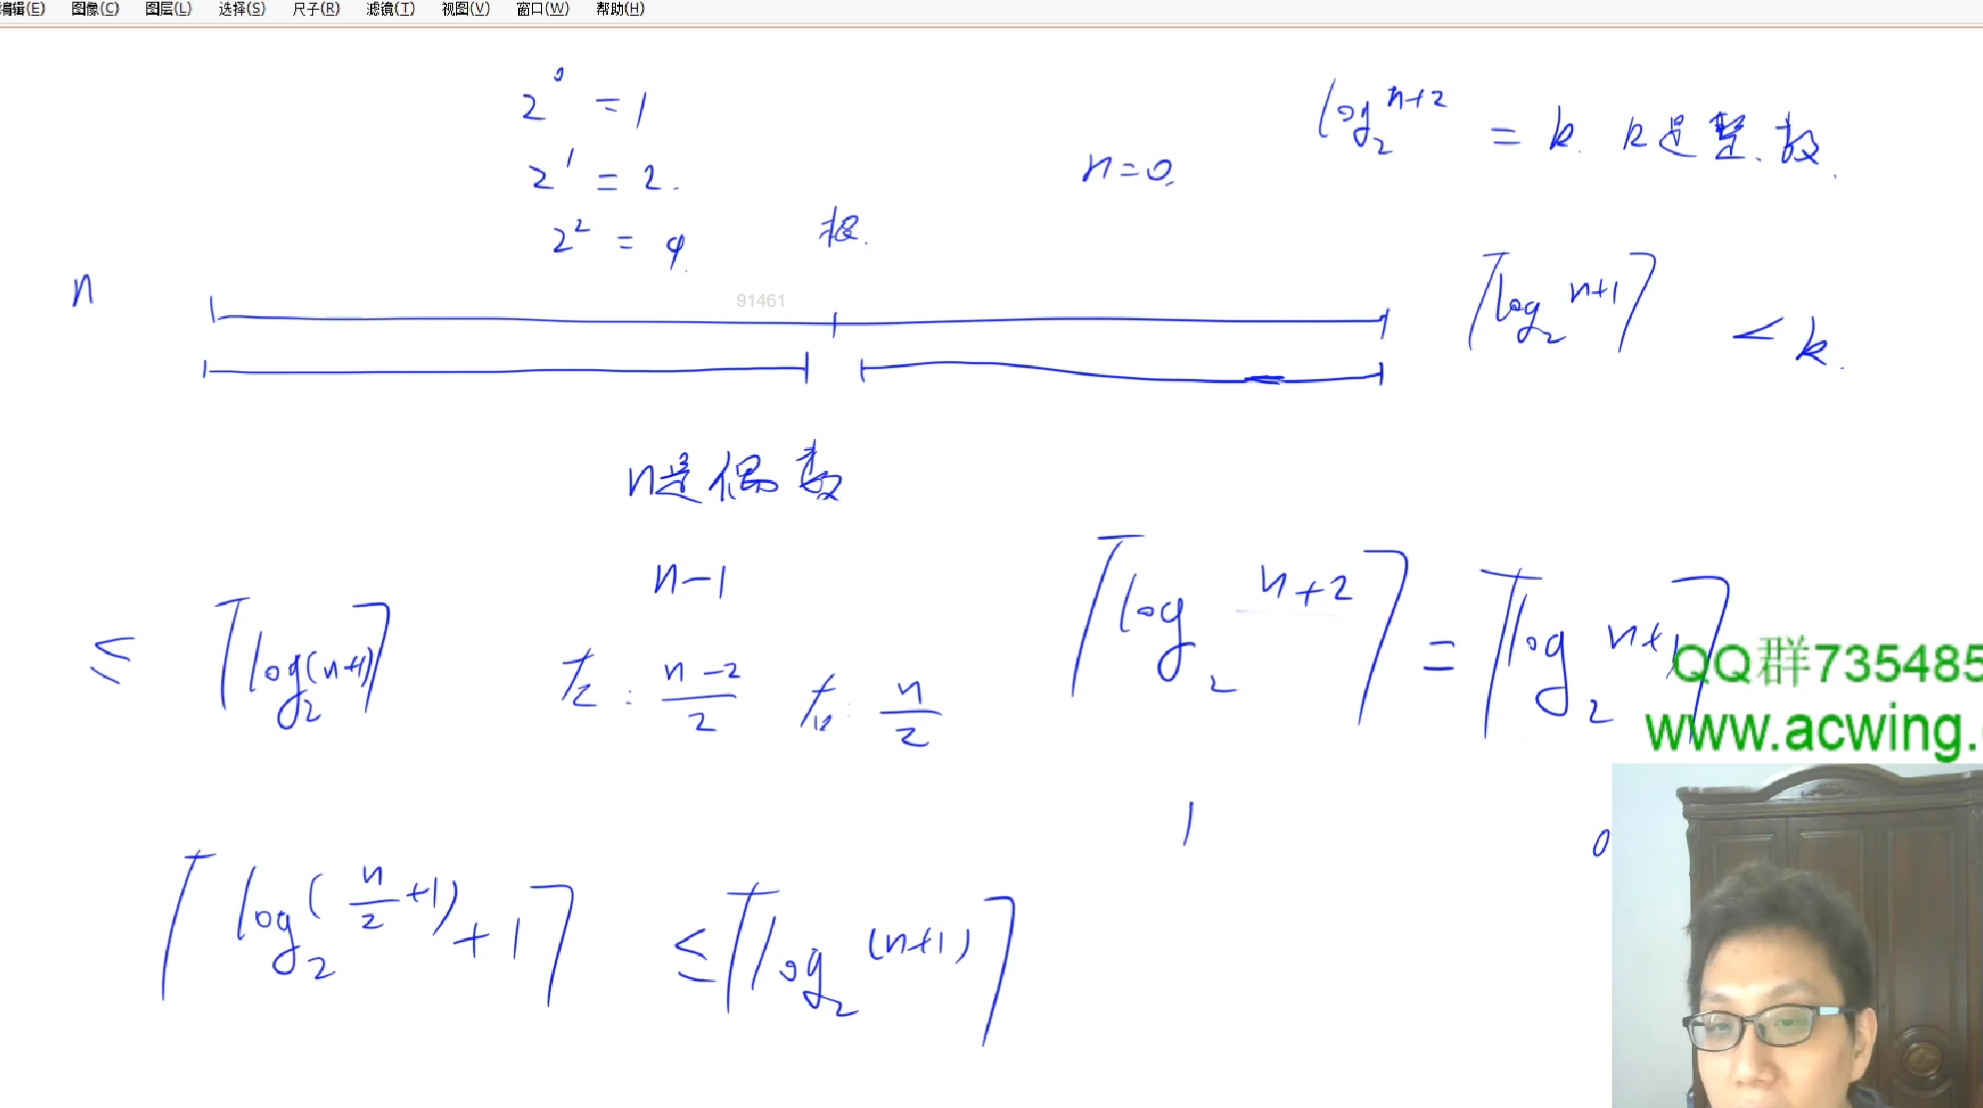 编辑(E) 图像(C) 图层(L) 选择(S) 尺子(R) 滤镜(T) 视图(V) 窗口(W) 帮助(H)
2^0 = 1
log_2^{n+2} = k. k是整数.
2^1 = 2.
n=0.
2^2 = 4
根.
n
91461
⌈log_2^{n+1}⌉ < k.
n是偶数
n-1
≤ ⌈log_2(n+1)⌉
左: \frac{n-2}{2} 右: \frac{n}{2}
⌈log_2^{n+2}⌉ = ⌈log_2^{n+1}⌉
QQ群735485
www.acwing.
1 0
⌈log_2(\frac{n}{2}+1)+1⌉ ≤ ⌈log_2^{(n+1)}⌉